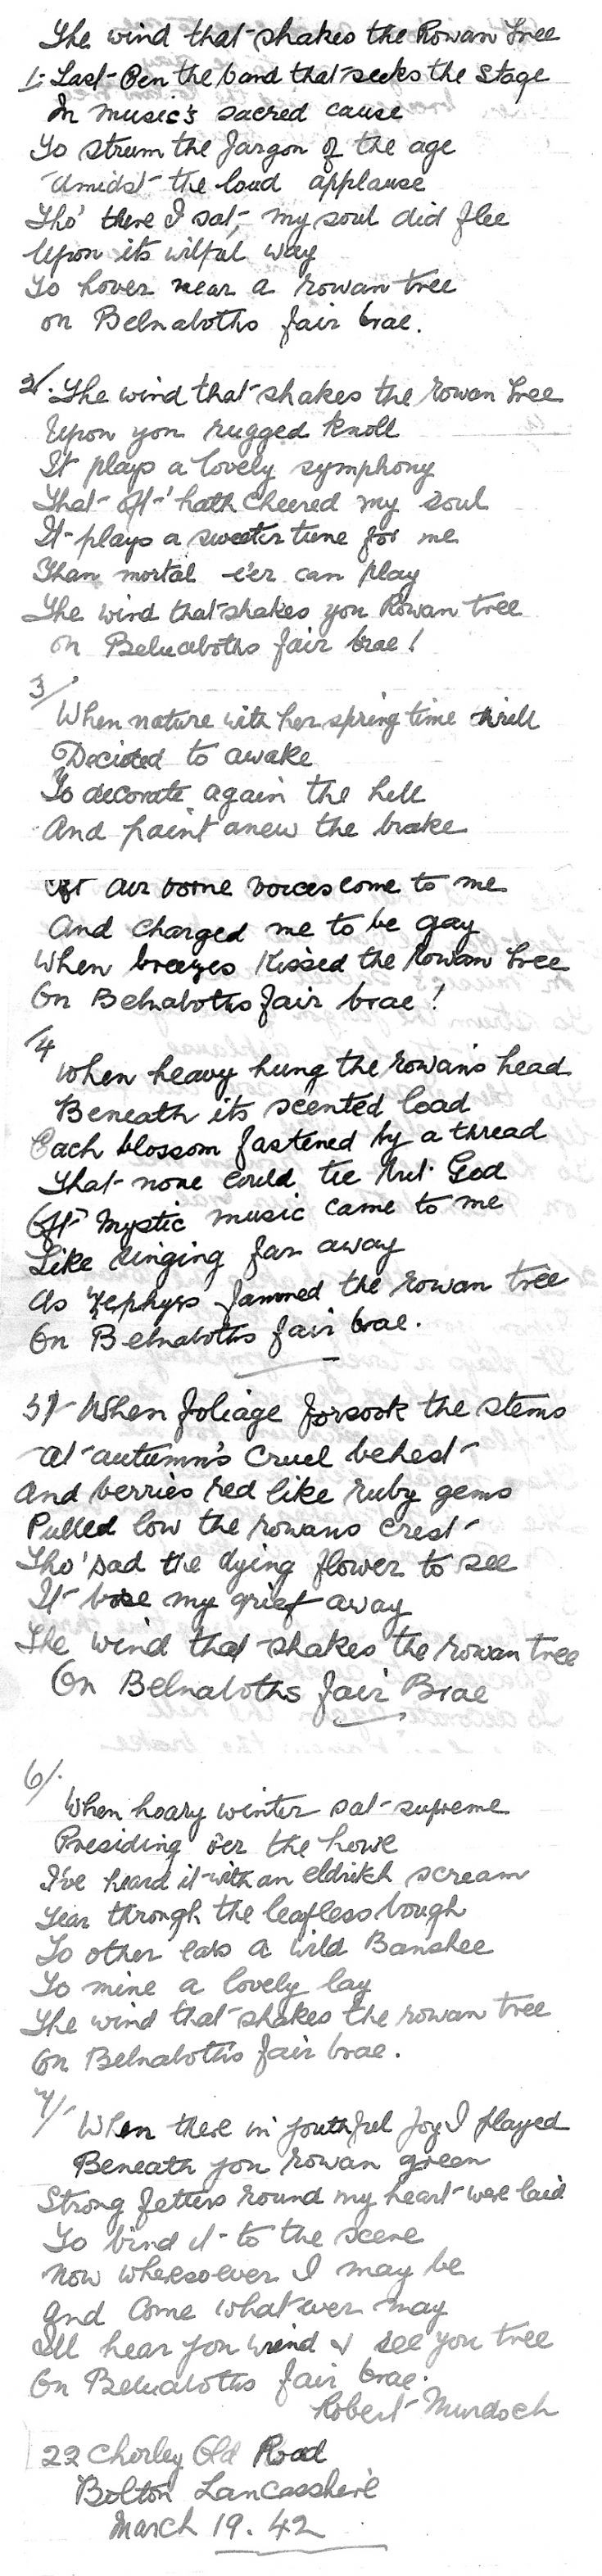 The wind that shakes the Rowan Tree
1. Last Een the band that seeks the Stage
In music's sacred cause
To strum the Jargon of the age
Amidst the loud applause
Tho' there I sat, my soul did flee
Upon its wilful way
To hover near a rowan tree
on Belnaboths fair brae.
2/. The wind that shakes the rowan Tree
Upon yon rugged knoll
It plays a lovely symphony
That oft' hath cheered my soul
It plays a sweeter tune for me
Than mortal e'er can play
The wind that shakes yon Rowan tree
on Belnaboths fair brae!
3/
When nature with her spring time thrill
Decided to awake
To decorate again the hill
And paint anew the brake
Oft air borne voices come to me
And charged me to be gay
When breezes kissed the Rowan Tree
On Belnaboths fair brae!
4
When heavy hung the rowans head
Beneath its scented load
Each blossom fastened by a thread
That none could tie but God
Oft mystic music came to me
Like singing far away
As zephyrs fanned the rowan tree
On Belnaboths fair brae.
5/ When foliage forsook the stems
At autumn's cruel behest
And berries red like ruby gems
Pulled low the rowans crest
Tho' sad the dying flower to see
It bore my grief away
The wind that shakes the rowan tree
On Belnaboths fair Brae
6/.
When hoary winter sat supreme
Presiding o'er the howe
I've heard it with an eldritch scream
Tear through the leafless bough
To other ears a wild Banshee
To mine a lovely lay
The wind that shakes the rowan tree
On Belnaboth's fair brae.
7/
When there in youthful Joy I played
Beneath yon rowan green
Strong fetters round my heart were laid
To bind it to the scene
Now wheresoever I may be
And Come what ever may
Ill hear yon wind & see yon tree
On Belnaboths fair brae.
Robert Murdoch
22 Chorley Old Road
Bolton Lancasshire
March 19. 42